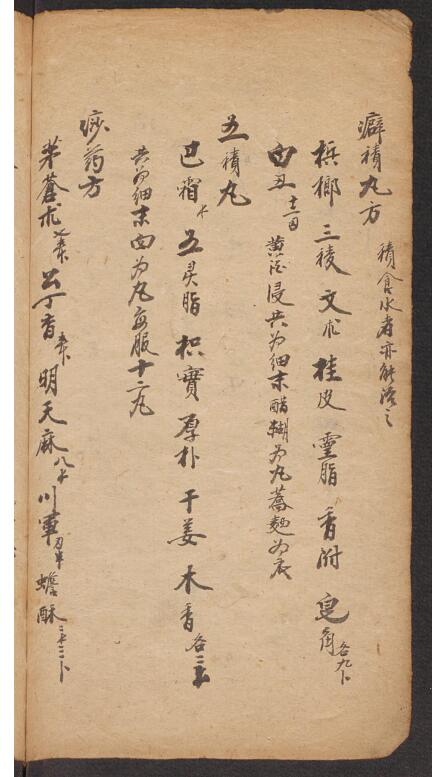 癖積丸方 積食水者亦能治之
檳榔 三稜 文朮 桂皮 靈脂 香附 皂角 各九卜
白丑 黄酒浸共为細末醋糊为丸蕎麵为衣
五積丸
巴霜 五灵脂 枳實 厚朴 干姜 木香 各三
共为細末面为丸每服十二丸
痧药方
茅蒼朮 公丁香 明天麻 川軍 蟾酥